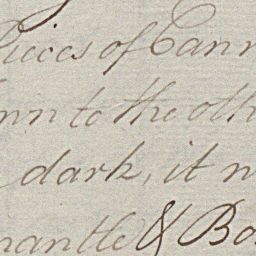 Pieces of Cann
nn to the oth
dark, it n
mantle & Bo